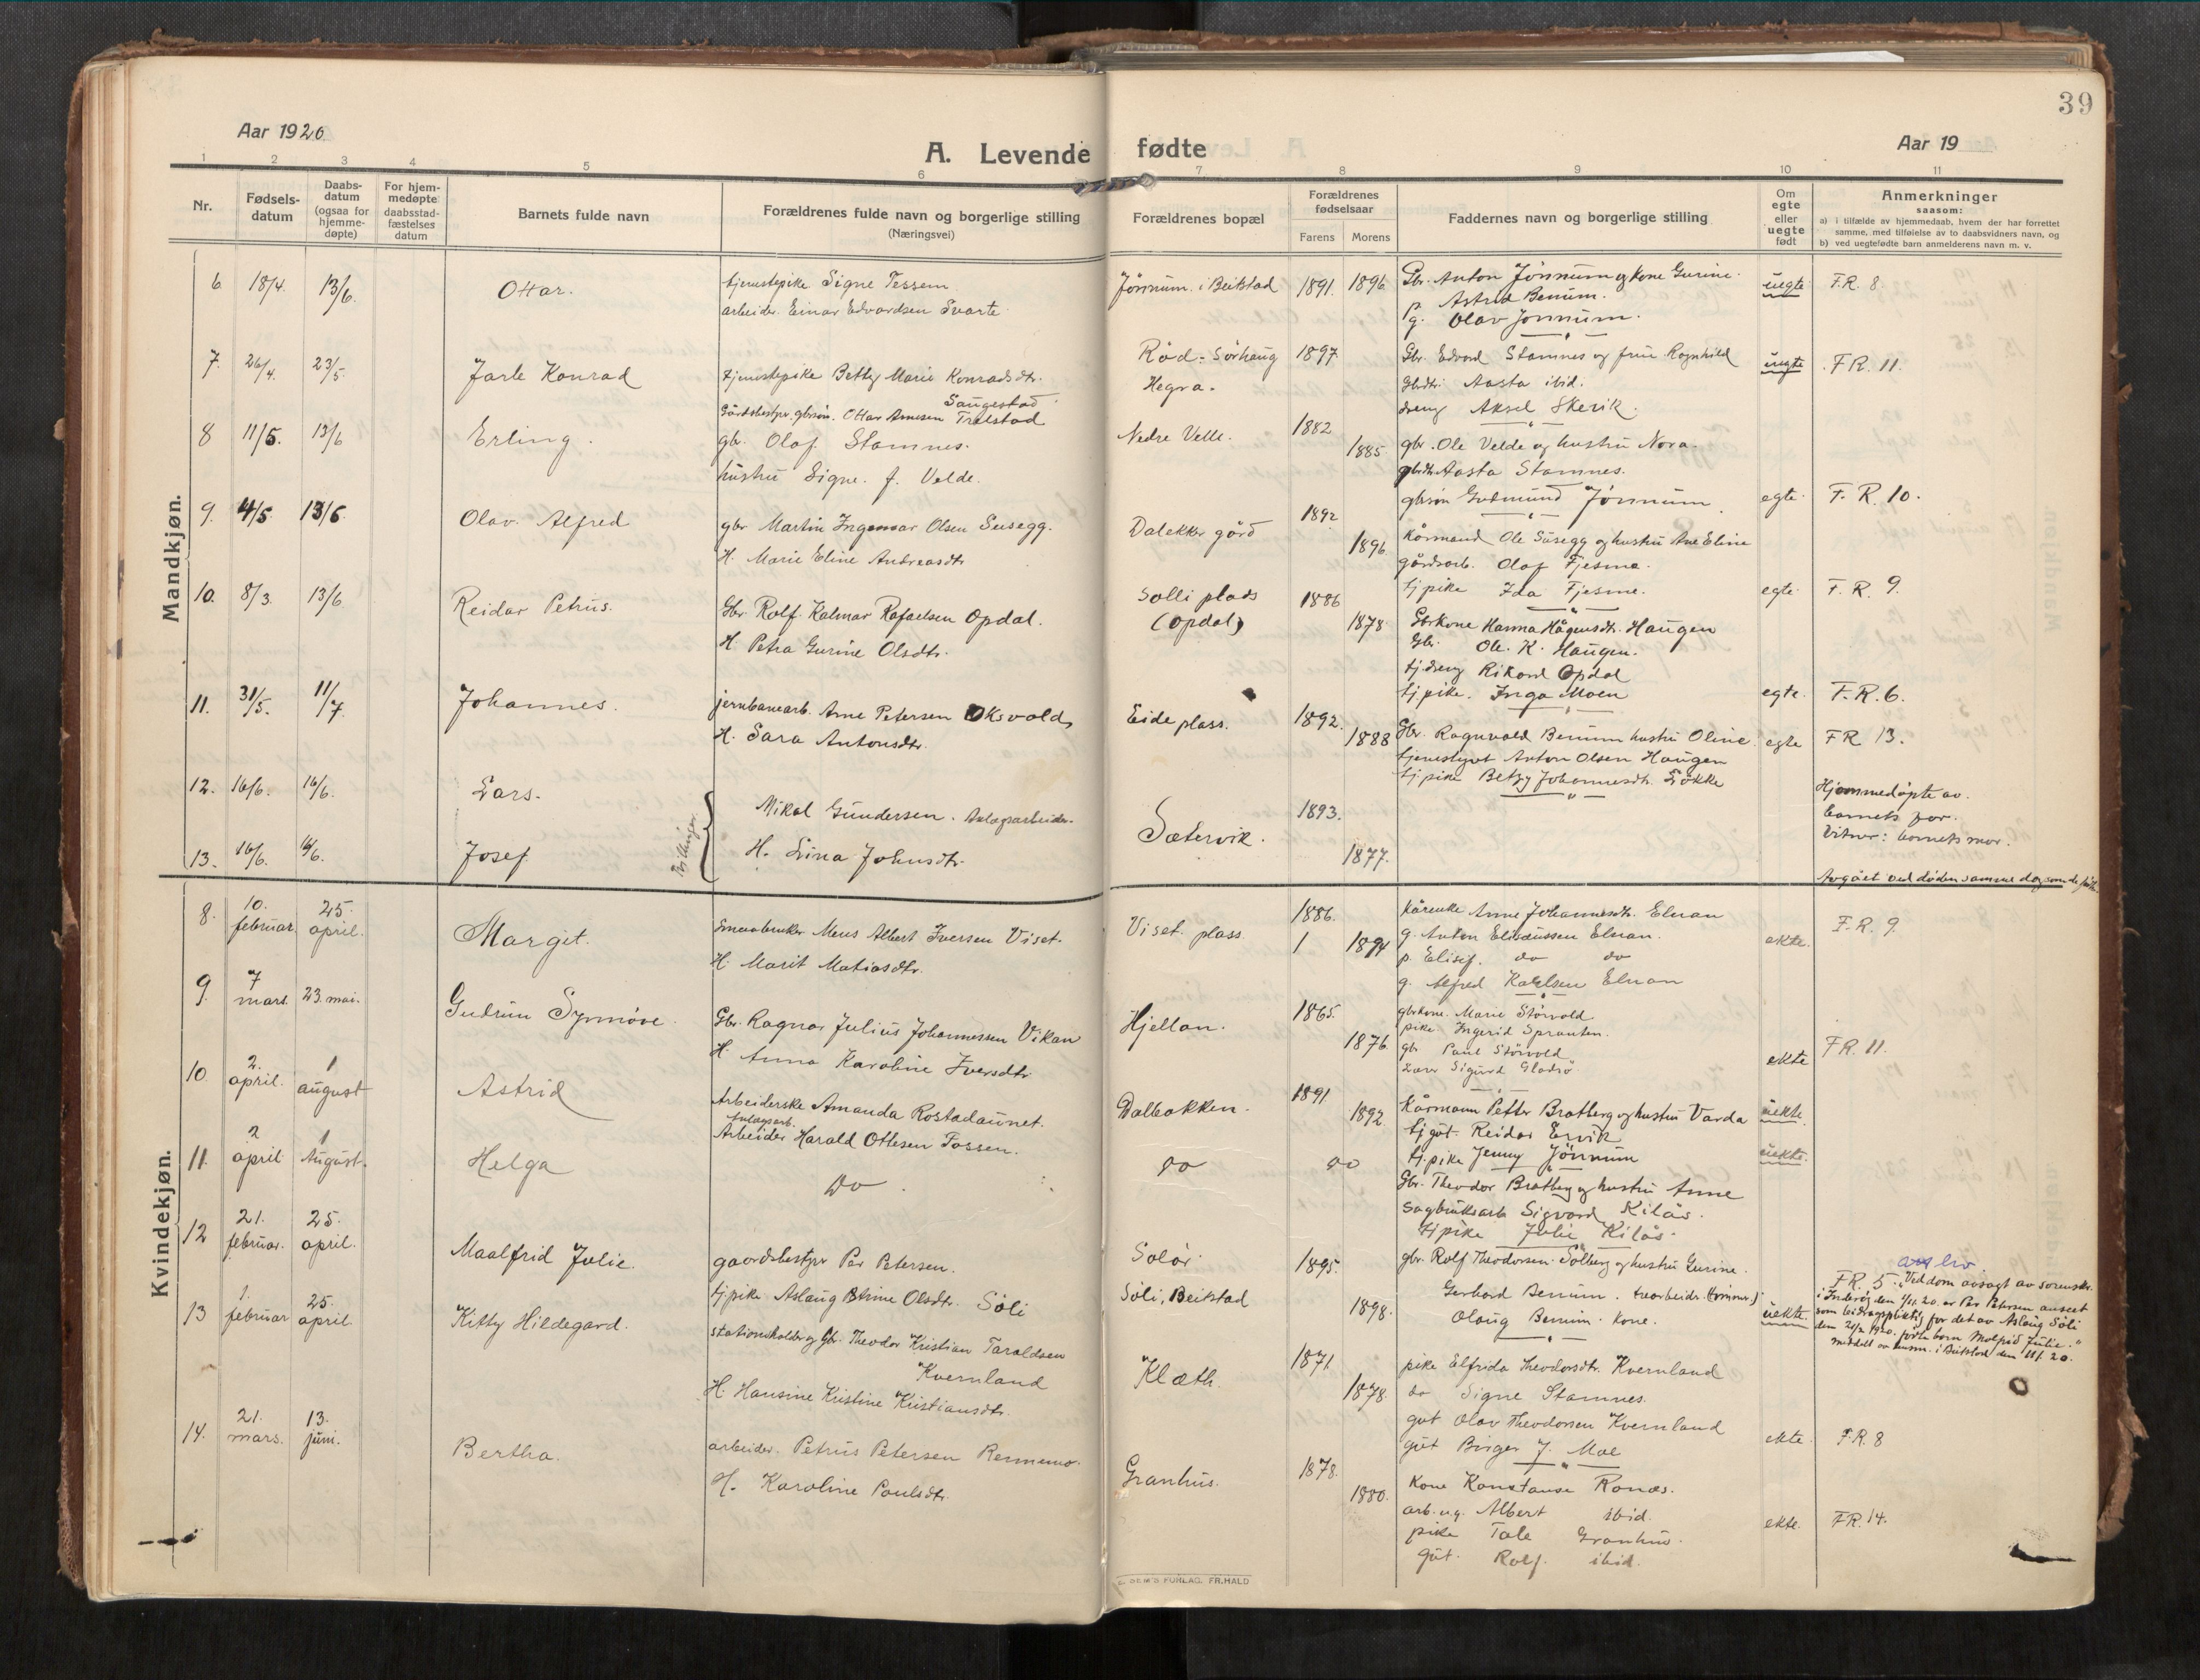 39
Aar 1920.
A. Levende fødte
Aar 19
1 2 3 4 5 6 7 8 9 10 11
Nr.
Fødsels-
datum
Daabs-
datum
(ogsaa for
hjemme-
døpte)
For hjem-
medøpte
daabsstad-
fæstelses
datum
Barnets fulde navn
Forældrenes fulde navn og borgerlige stilling
(Næringsvei)
Forældrenes bopæl
Forældrenes
fødselsaar
Farens Morens
Faddernes navn og borgerlige stilling
Om
egte
eller
uegte
født
Anmerkninger
saasom:
a) i tilfælde av hjemmedaab, hvem der har forrettet
samme, med tilføielse av to daabsvidners navn, og
b) ved uegtefødte barn anmelderens navn m. v.
Mandkjøn.
6 18/4. 13/6. Ottar.
tjenestepike Signe Tessem
arbeider. Einar Edvardsen Svarte
Jønnum. i Beitstad 1891. 1896
Gbr. Anton Jønnum og kone Gurine.
p. Astrid Benum.
g. Olav Jønnum.
uegte F.R. 8.
7. 26/4. 23/5. Jarle Konrad
tjenestepike Betty Marie Konradsdtr.
Saugestad
Gårdsbestyr. gbrsøn. Ottar Arnesen Trælstad
Rød = Sørhaug 1897
Hegra.
Gbr. Edvard Stamnes og frue Ragnhild
Gbdtr. Aasta ibid.
dreng Aksel Skevik.
uegte F.R. 11.
8 11/5. 13/6 Erling.
gbr. Olaf Stamnes.
hustru Signe. f. Velde.
Nedre Velle. 1882 1885.
gbr. Ole Velde og hustru Nora.
gbrdtr. Aasta Stamnes.
gbrsøn Gudmund Jønnum.
egte. F. R. 10.
9. 4/5. 13/6. Olav Alfred
gbr Martin Ingemar Olsen Susegg.
H. Marie Eline Andreasdtr
Dalekker gård 1892 1896.
Kårmand Ole Susegg og hustru Ane Eline
gårdsarb. Olaf Fjesme.
tj pike Ida Fjesme.
egte. F. R. 9.
10. 8/3. 13/6 Reidar Petrus.
Gbr. Rolf Kalmar Rafaelsen Opdal.
H. Petra Gurine Olsdtr.
Solli plads
(Opdal) 1886 1878
Gbrkone Hanna Hågensdtr. Haugen
Gbr. Ole. K. Haugen.
tj.dreng Rikard Opdal
tj.pike. Inga Moen
egte. F.R. 6.
11. 31/5. 11/7. Johannes.
jernbanearb. Arne Petersen Oksvold,
H. Sara Antonsdtr.
Eide plass. 1892. 1888
Gbr. Ragnvald Benum hustru Oline.
tjenestegut Anton Olsen Haugen
tj pike Betzy Johannesdtr. Løkke
egte FR 13.
12. 16/6. 16/6. Lars.
13. 16/6. 16/6. Josef
Tvillinger.
Mikal Gundersen. Anlægsarbeider.
H. Lina Johnsdtr.
Sætervik. 1893. 1877.
Hjemmedøpte av.
barnets far.
Vitner: barnets mor.
Avgået ved døden samme dag som de fødte
Kvindekjøn.
8. 10. februar. 25. april. Margit.
Smaabruker Meus Albert Iversen Viset.
H. Marit Matiasdtr.
Viset. plass. 1886. 1894
Kårenke Anne Johannesdtr. Elnan
g. Anton Eliseussen Elnan.
p. Elisif. do do
g. Alfred Karlsen Elnan
ekte. F.R. 9.
9. 7 mars. 23. mai. Gudrun Synnøve.
Gbr. Ragnar Julius Johannessen Vikan
H. Anna Karoline Iversdtr
Hjellan. 1865. 1876.
gbrkone. Marie Størvold
pike Ingerid Sprauten.
gbr Paul Størvold
Lærer Sigurd Gladsø
ekte FR. 11.
10. 2. april. 1 august Astrid
Arbeiderske Amanda Rostadaunet.
Anlægsarb.
Arbeider Harald Ottesen Fossen.
Dalbakken. 1891 1892.
Kårmann Petter Bratberg og hustru Varda
tj gut. Reidar Ervik
tj. pike Jenny Jønnum
uekte.
11. 2 april 1 August. Helga
Do
do do
Gbr. Theodor Bratberg og hustru Anne
sagbruksarb Sigvard Kilås.
tj pike Julie Kilås.
uekte.
12 21. februar. 25. april. Maalfrid Julie.
gaardsbestyr Per Petersen.
tj.pike. Aslaug Strine Olsdtr. Søli
Solør
Søli, Beitstad 1895. 1898.
gbr. Rolf Theodorsen Solberg og hustru Gurine.
Gerhard Benum.
Olaug Benum. kone.
uekte.
FR. 5. "Ved dom avsagt av sorenskr.
i Inderøy den 4/11.20. er Per Petersen anseet
som bidragspliktig for det av Aslaug Søli
den 21/2 1920. fødte barn Molfrid Julie."
meddelt av lensm. i Beitstad den 11/1.20.
13 1. februar 25. april Kitty Hildegard.
Stationsholder og Gbr. Theodor Kristian Taraldsen
Kvernland
H. Hansine Kristine Kristiansdtr.
Klæth. 1871. 1878.
pike Elfrida Theodorsdtr. Kvernland
do Signe Stamnes.
gut Olav Theodorsen Kvernland
gut Birger J. Moe
ekte. F.R. 8
14. 21. mars. 13. juni. Bertha.
arbeider. Petrus Petersen Rennemo.
H. Karoline Paulsdtr.
Granhus. 1878. 1880.
Kone Konstanse Ranås.
arb. ug. Albert ibid.
pike Tale Granhus.
gut. Rolf. ibid.
ekte. FR. 14.
SEM'S FORLAG. FR. HALD